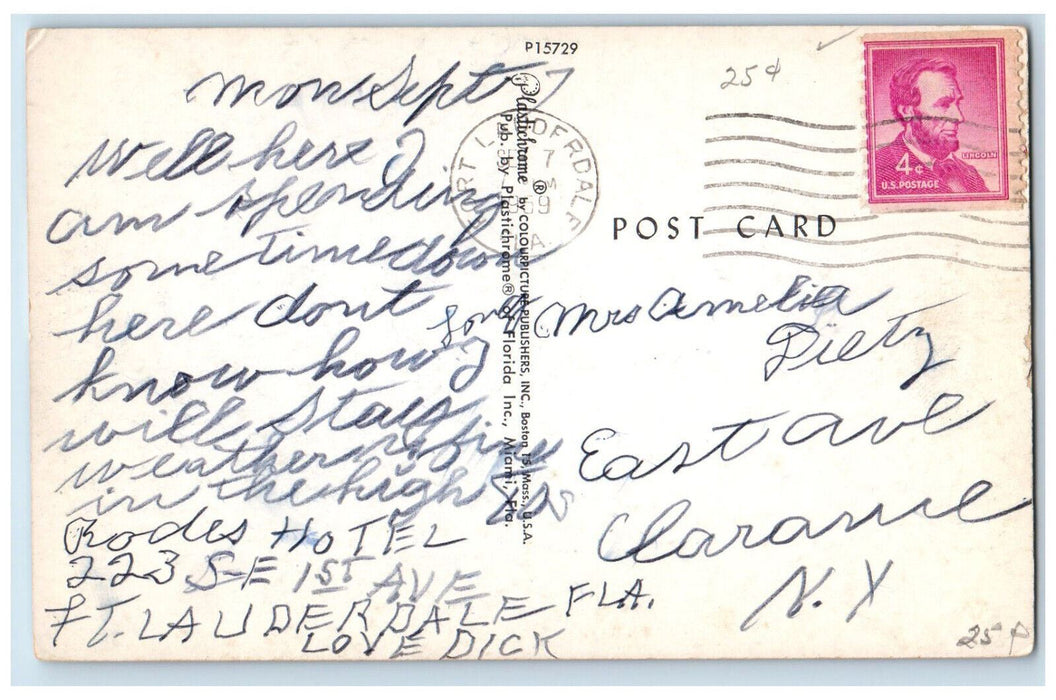 P15729
25¢
Mon Sept 7
Well here I
am spending
sometime down
here dont
know how long I
will Stay
weather is fine
in the high 80s
Rodes HOTEL
223 S-E 1ST AVE
FT. LAUDERDALE FLA.
LOVE DICK
Plastichrome ® by COLOURPICTURE PUBLISHERS, INC., Boston 15, Mass., U.S.A.
Pub. by Plastichrome® of Florida Inc., Miami, Fla.
FORT LAUDERDALE
7
FLA.
4¢
LINCOLN
U.S. POSTAGE
POST CARD
Mrs Amelia
Dietz
East Ave
Clarance
N.Y
25